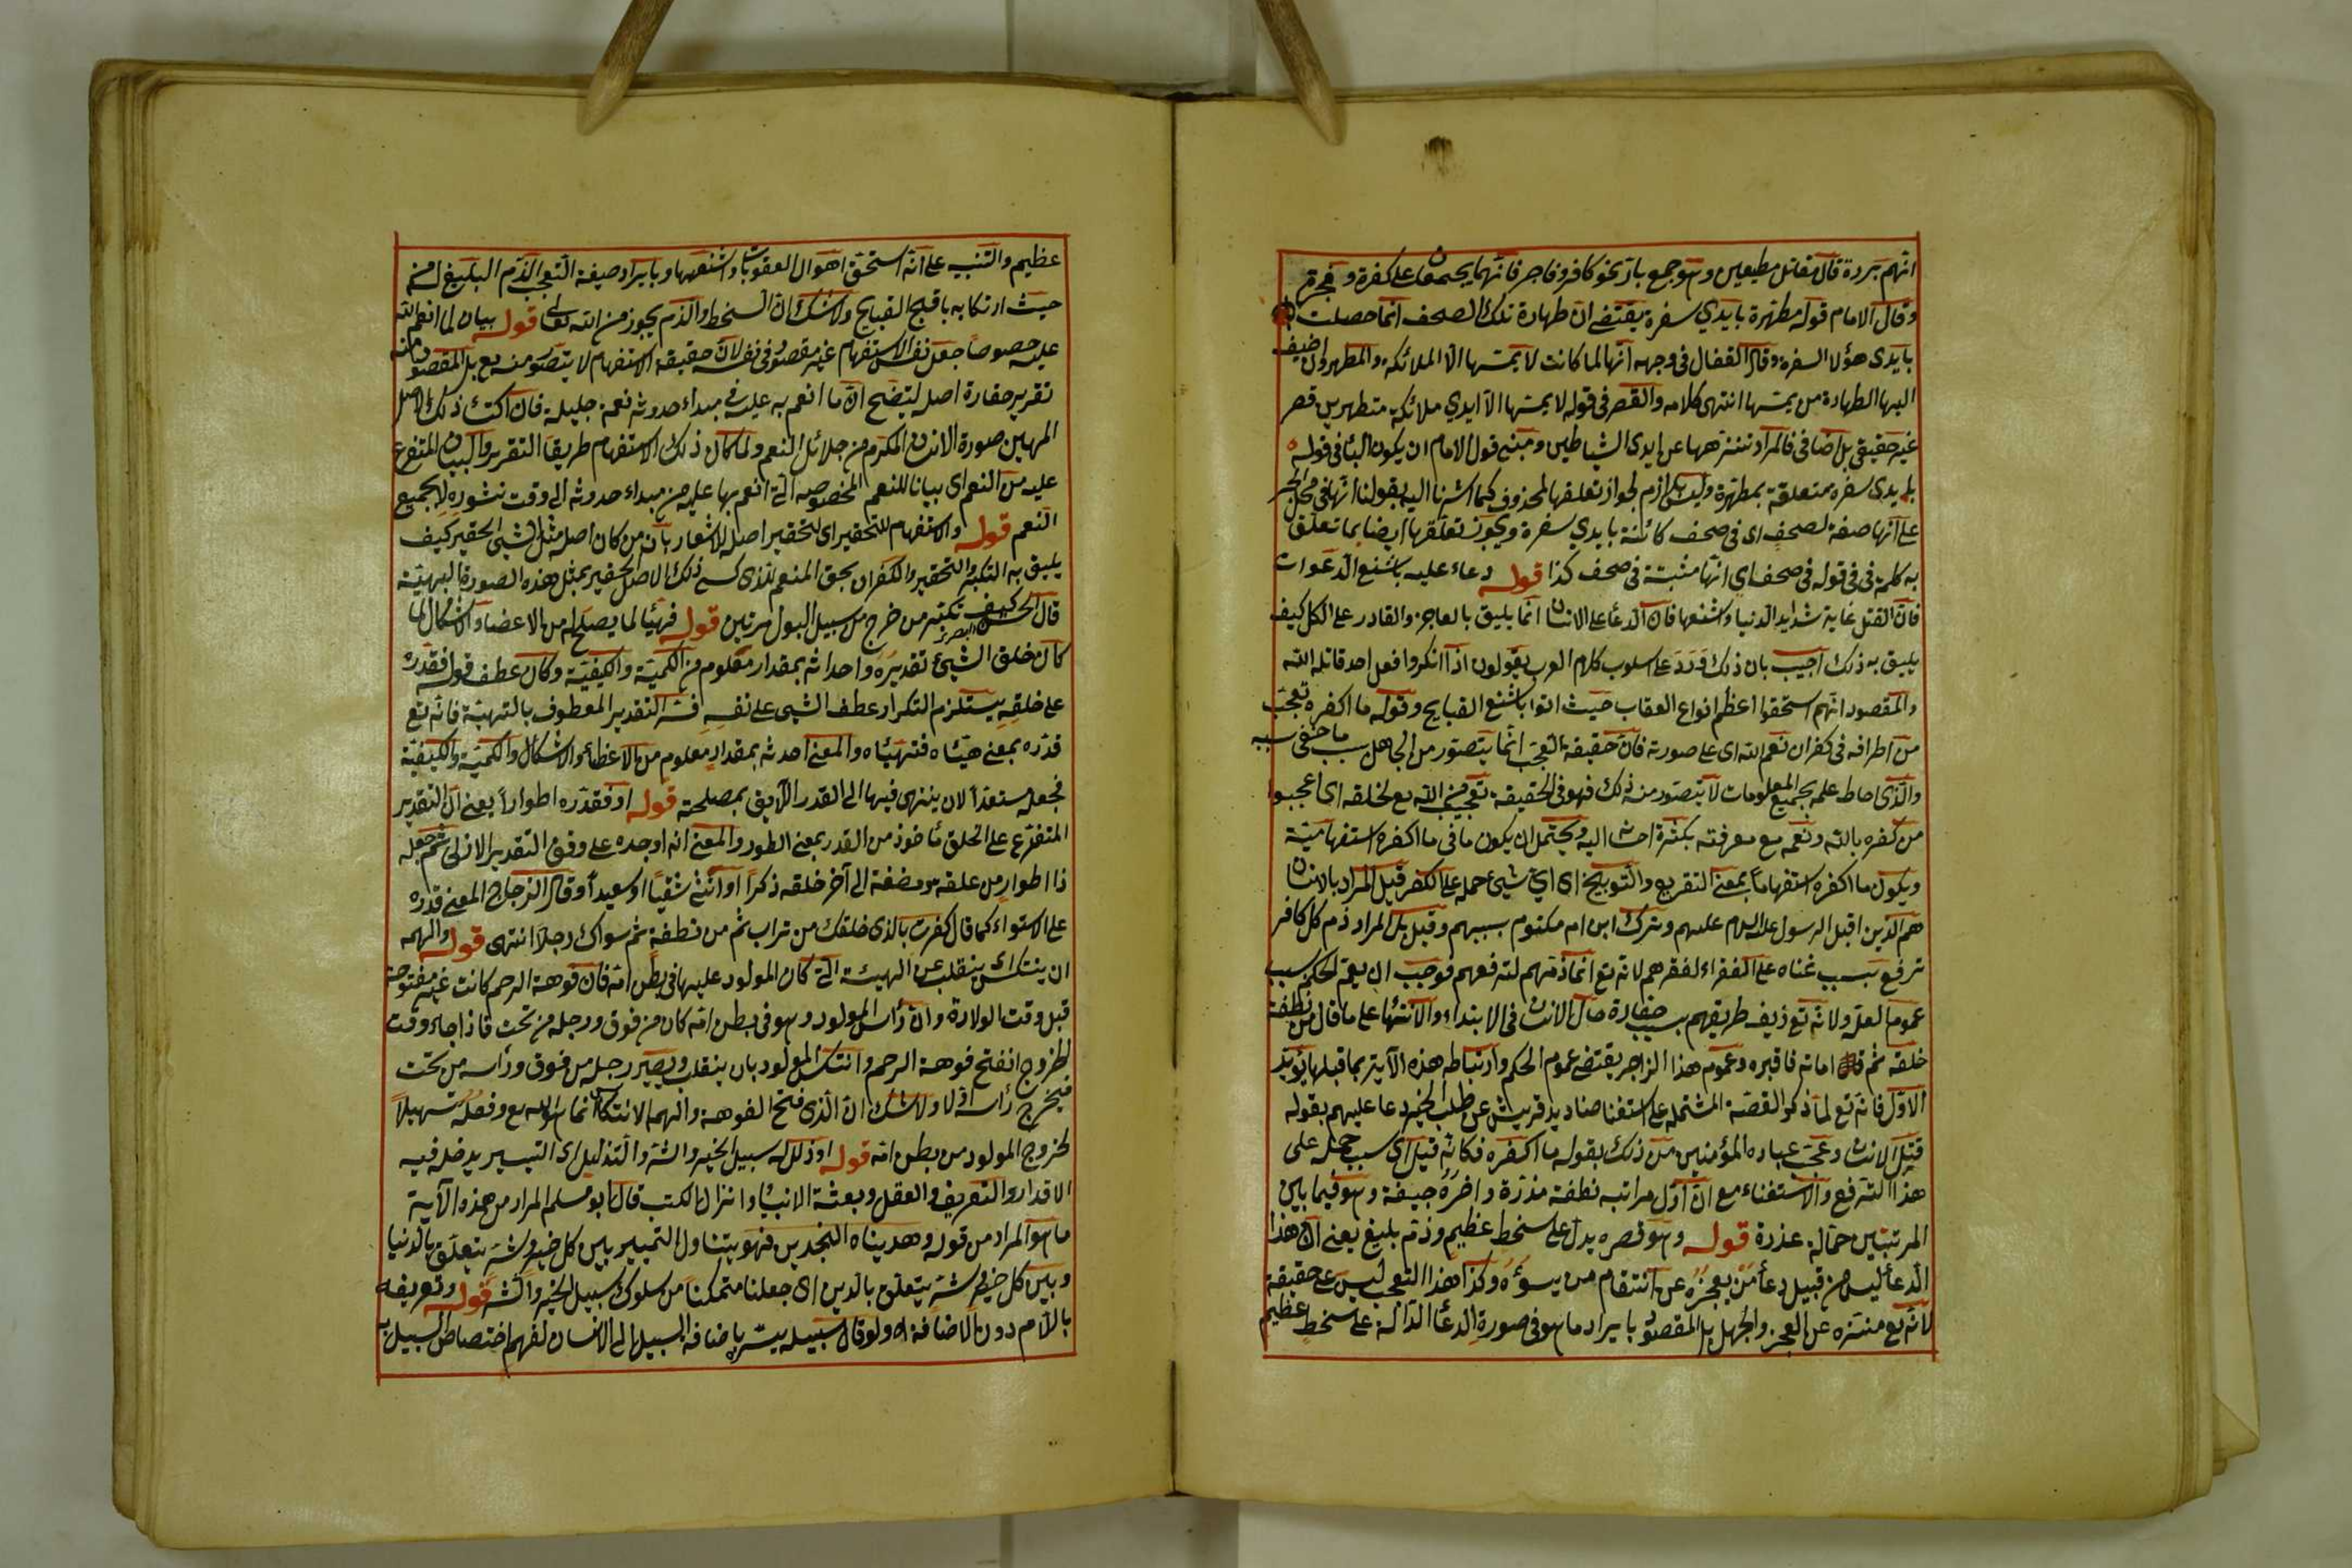 انهم بررة قال مقاتل مطيعين وهو جمع بار نحو كافر وفاجر فانهما يجمعان على كفرة وفجرة
وقال الامام قوله مطهرة بايدي سفرة يقتضى ان طهارة تلك الصحف انما حصلت
بايدى هؤلا السفرة وقال القفال فى وجهه انها لما كانت لا يمسها الا الملائكة والمطهرون اضيف
اليها الطهارة من يمسها انتهى كلامه والقصر فى قوله لا يمسها الا ايدي ملائكة متطهرين قصر
غير حقيقى بل اضافى فالمراد تنزهها عن ايدى الشياطين ومبنى قول الامام ان يكون البا فى قوله
بايدى سفرة متعلقة بمطهرة وليس بلازم لجواز تعلقها لمحذوف كما اشرنا اليه بقولنا انها فى محل الجر
على انها صفة لصحف اى فى صحف كائنة بايدي سفرة ويجوز تعلقها ايضا بما تعلق
به كلمة فى فى قوله فى صحف اى انها مثبتة فى صحف كذا قوله دعاء عليه باشنع الدعوات
فان القتل غاية شدايد الدنيا واشنعها فان الدعا على الانسان انما يليق بالعاجز والقادر على الكل كيف
يليق به ذلك اجيب بان ذلك ورد على اسلوب كلام العرب يقولون اذا انكروا فعل احد قاتله الله
والمقصود انهم استحقوا اعظم انواع العقاب حيث اتوا باشنع القبايح وقوله ما اكفره تعجب
من اطرافه فى كفران نعم الله اى على صورته فان حقيقة التعجب انما يتصور من الجاهل بسبب ما خفى سببه
والذى احاط علمه بجميع المعلومات لا يتصور منه ذلك فهو فى الحقيقة تعجيب من الله تع لخلقه اى اعجبوا
من كفره بالله ونعمه مع معرفته بكثرة احسانه اليه ويحتمل ان يكون ما فى ما اكفره استفهامية
ويكون ما اكفره استفهاما بمعنى التقريع والتوبيخ اى اي شيئ حمله على الكفر قيل المراد بالانسان
هم الذين اقبل الرسول عليه السلام عليهم وترك ابن ام مكتوم بسببهم وقيل بل المراد ذم كل كافر
ترفع بسبب غناه على الفقراء لفقرهم لانه تع انما ذمهم لترفعهم فوجب ان يعم الحكم بسبب
عموم العلة ولانه تع زيف طريقهم بسبب حقارة حال الانسان فى الابتداء والانتهاء على ما قال من نطفة
خلقه ثم قال اماته فاقبره وعموم هذا الزاجر يقتضى عموم الحكم وارتباط هذه الآية بما قبلها يؤيد
الاول فانه تع لما ذكر القصة المشتملة على استغنا صناديد قريش عن طلب الخير دعا عليهم بقوله
قتل الانسان وعجب عباده المؤمنين من ذلك بقوله ما اكفره فكانه قيل اي سبب حمله على
هذا الترفع والاستغناء مع ان اول مراتبه نطفة مذرة واخره جيفة وهو فيما بين
المرتبتين حمالة عذرة قوله وهو قصره يدل على سخط عظيم وذم بليغ يعنى ان هذا
الدعا ليس من قبيل دعا من يعجزه عن انتقام من يسوؤه وكذا هذا التعجب ليس على حقيقة
لانه تع منزه عن العجز والجهل بل المقصود بايراد ما هو فى صورة الدعا الدالة على سخط عظيم
عظيم والتنبيه على انه استحق اهوال العقوبات واشنعها وبايراد صيغة التعجب الذم البليغ له من
حيث ارتكابه باقبح القبايح ولا شك ان السخط والذم يجوز من الله تعالى قوله بيان لما انعم الله
عليه خصوصا جعل نفس الاستفهام غير مقصود فى نفسه لان حقيقة الاستفهام لا يتصور منه تع بل المقصود منه
تقرير حقارة اصله ليتضح ان ما انعم به عليه فى مبداء حدوثه نعمة جليلة فان اكتساء ذلك الاصل
المهين صورة الانسان المكرم من جلائل النعم ولما كان ذلك الاستفهام طريقا للتقرير والبيان المتفرع
عليه من النعم اى بيانا للنعم المخصوصة التى انعم بها عليه من مبداء حدوثه الى وقت نشوره لا بجميع
النعم قوله والاستفهام للتحقير اى لتحقير اصله للاشعار بان من كان اصله مثل الشيئ الحقير كيف
يليق به التكبر والتحقير والكفران بحق المنعم الذى كسى ذلك الاصل الحقير بمثل هذه الصورة البهية
قال الحسن البصرى كيف تكبر من خرج من سبيل البول مرتين قوله فهيأ لما يصلح له من الاعضاء والاشكال لما
كان خلق الشيئ تقديره واحداثه بمقدار معلوم من الكمية والكيفية وكان عطف قوله فقدره
على خلقه يستلزم التكرار عطف الشيئ على نفسه فسر التقدير المعطوف بالتهيئة فانه تع
قدره بمعنى هيئاه فتهيئاه والمعنى احدثه بمقدار معلوم من الاعضاء والاشكال والكمية والكيفية
فجعله مستعدا لان ينتهى فيها الى القدر اللايق بمصلحة قوله او فقدره اطوارا يعنى ان التقدير
المتفرع على الخلق ماخوذ من القدر بمعنى الطور والمعنى انه اوجده على وفق التقدير الازلى ثم جعله
ذا اطوار من علقة ومضغة الى آخر خلقه ذكرا او انثى شقيا او سعيدا وقال الزجاج المعنى قدره
على الاستواء كما قال اكفرت بالذى خلقك من تراب ثم من نطفة ثم سواك رجلا انتهى قوله والهمه
ان ينتكس اى ينقلب عن الهيئة التى كان المولود عليها فى بطن امه فان فوهة الرحم كانت غير مفتوحة
قبل وقت الولادة وان رأس المولود وهو فى بطن امه كان من فوق ورجله من تحت فاذا جاء وقت
الخروج انفتح فوهة الرحم وانتكس المولود بان ينقلب ويصير رجله من فوق ورأسه من تحت
فيخرج رأسه اولا ولا شك ان الذى فتح الفوهة والهمه الانتكاس انما هو الله تع وفعله تسهيلا
لخروج المولود من بطن امه قوله او ذلل له سبيل الخير والشر والتذليل اى التيسير يدخل فيه
الاقدار والتعريف والعقل وبعثة الانبياء وانزال الكتب قال ابو مسلم المراد من هذه الآية
ما هو المراد من قوله وهديناه النجدين فهو يتناول التمييز بين كل خير وشر يتعلق بالدنيا
وبين كل خير وشر يتعلق بالدين اى جعلنا متمكنا من سلوك سبيل الخير والشر قوله وتعريفه
باللام دون الاضافة اه ولو قال سبيله يسره باضافة السبيل الى الانسان لفهم اختصاص السبيل به